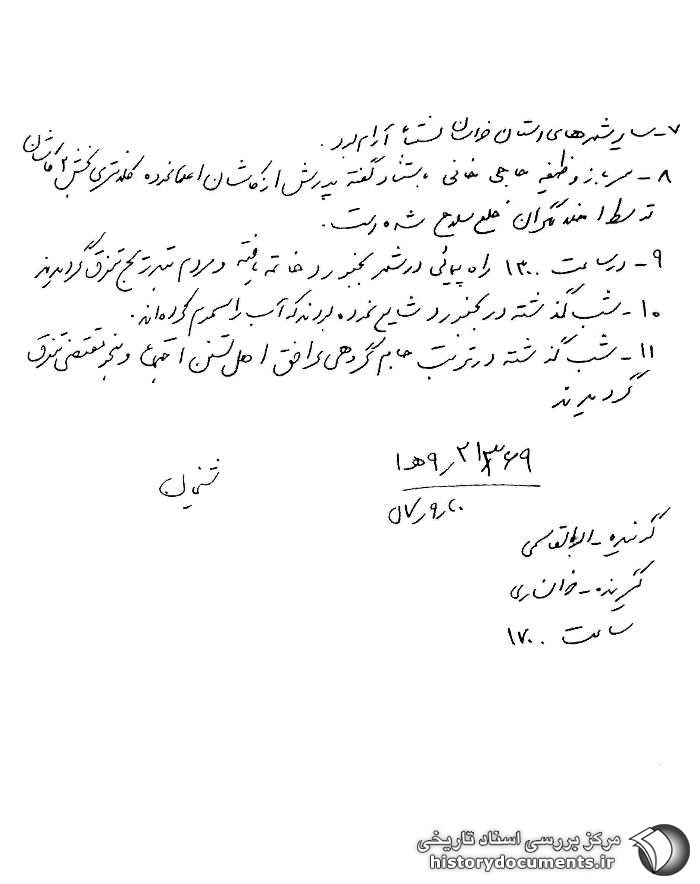 ۷- سایر شهرهای استان خراسان نسبتاً آرام بود.
۸- سرباز وظیفه حاجی خانی بنا بگفته پدرش از کاشان اعزام نموده کلانتری بخش ۲ کاشان
توسط اخلالگران خلع سلاح شده است.
۹- در ساعت ۱۳۰۰ راه پیمائی در شهر بجنورد خاتمه یافته و مردم بتدریج متفرق گردیدند
۱۰- شب گذشته در بجنورد شایع نموده بودند که آب را مسموم کرده‌اند.
۱۱- شب گذشته در تربت جام گروهی موافق اهل تسنن اجتماع و بنحو مقتضی متفرق
گردیدند
۹ه۱
۲۰ر۹ر۵۷
گوینده- ابوالقاسمی
گیرنده- خوانساری
ساعت ۱۷۰۰
مرکز بررسی اسناد تاریخی
historydocuments.ir